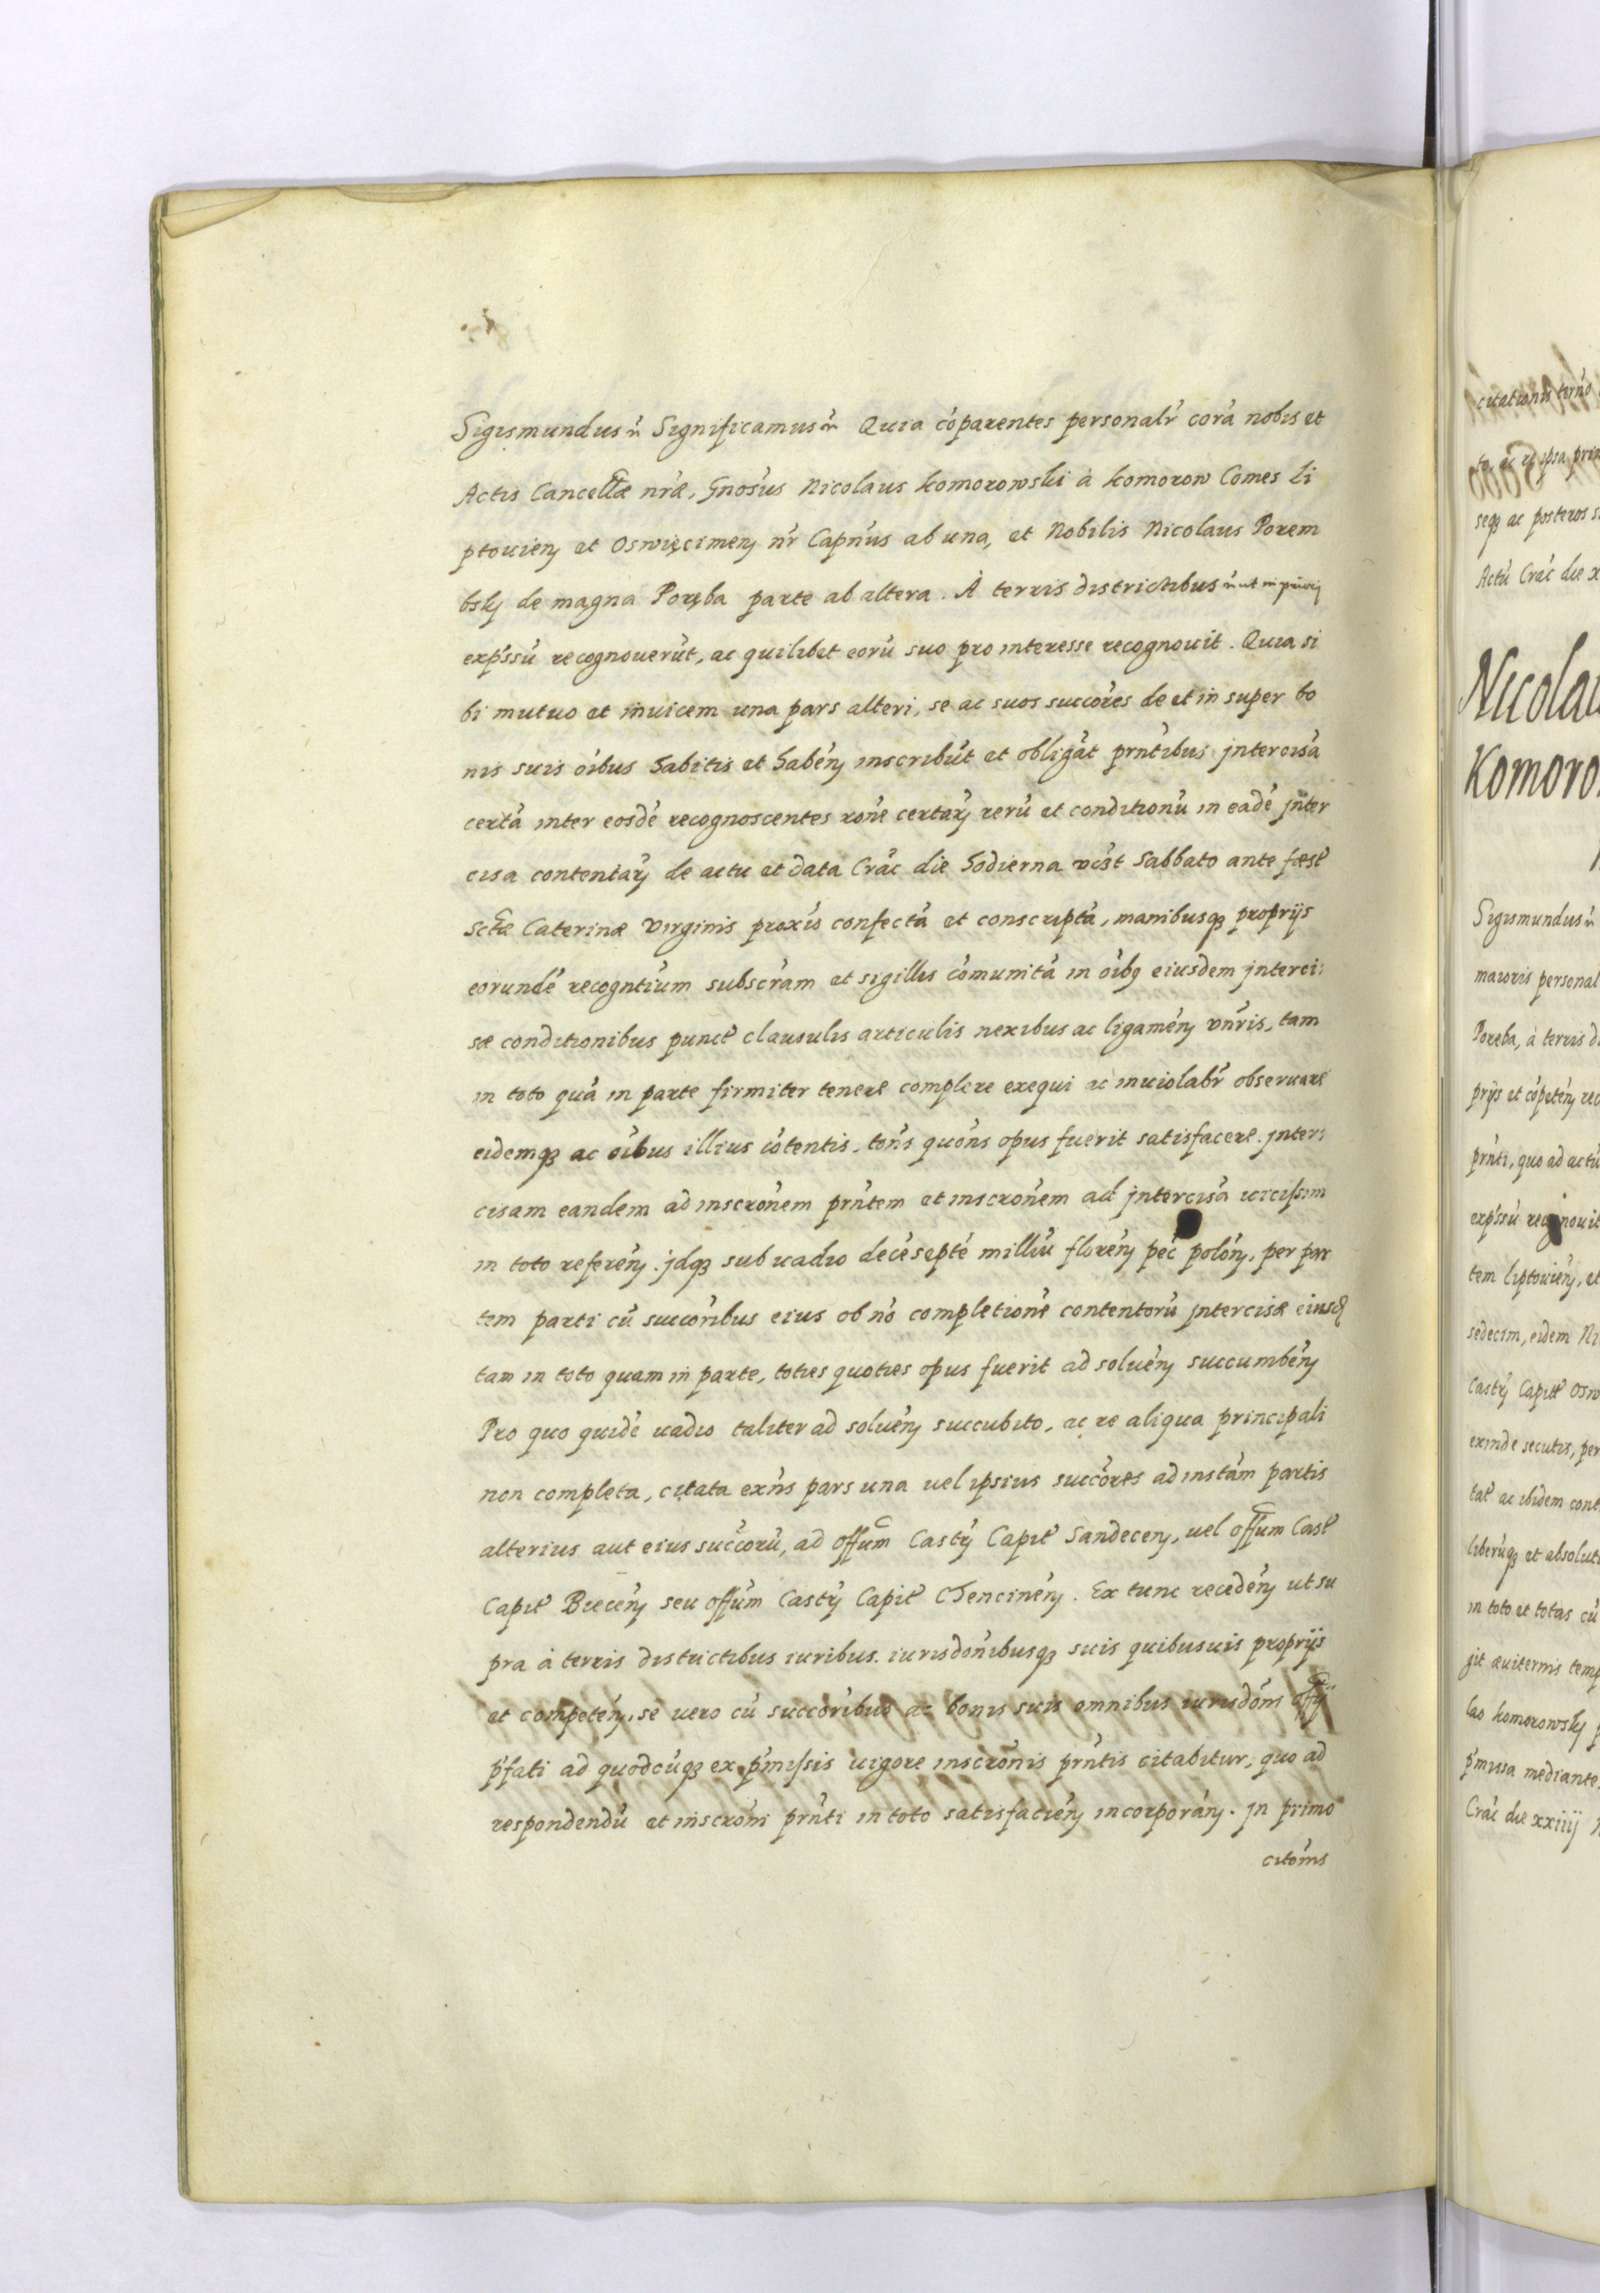 Sigismundus Significamus Quia cóparentes personalr̃ corá nobis et
Actis Cancellæ nr̃æ, Gnosus Nicolaus Komorowski à Komorow Comes Li
ptouień et Oswięcimeń nr̃ Capnús ab una, et Nobilis Nicolaus Porem
bskj de magna Poręba parte ab altera. À terris districtibus ut in priori
exp̃ssú recognouerút, ac quilibet eorú suo pro interesse recognouit. Quia si
bi mutuo et inuicem una pars alteri, se ac suos succóres de et in super bo
nis suis óibus habitis et habéń inscribút et obligát prńtibus jntercisá
certá inter eosdé recognoscentes roñe certarų rerú et conditionú in eadé jnter
cisa contentarų de actu et data Crać die hodierna v̓st Sabbato ante fæst̃
Sctæ Caterinæ Virginis proxió confectá et conscriptá, manibusqȝ proprijs
eorundé recogntium subscrám et sigillis cómunitá in óibꝯ eiusdem jnterci:
sæ conditionibus punct̃ clausulis articulis nexibus ac ligaméń vńris, tam
in toto quá in parte firmiter tenere complere exequi ac inuiolabr̃ obseruare
eidemqȝ ac óibus illius cótentis, tońs quońs opus fuerit satisfacere. jnter:
cisam eandem ad inscrońem prńtem et inscrońem ad jntercisá uicissim
in toto referéń. jdqȝ sub uadio decésepté milliú floréń peć polóń, per par
tem parti cú succóribus eius ob nó completioné contentorú jntercisæ eiusd
tam in toto quam in parte, toties quoties opus fuerit ad soluéń succumbéń
Pro quo quidé uadio taliter ad soluéń succubito, ac re aliqua principali
non completa, citata exńs pars una uel ipsius succóres ad instám partis
alterius aut eius succórú, ad offum Castrų Capit̃ Sandeceń, uel offum Cast̃
Capit̃ Biecéń seu offúm Castrų Capit̃ Chencinéń. Ex tunc recedéń ut su
pra à terris districtibus iuribus. iurisdońibusqȝ suis quibusuis proprijs
et competéń, se uero cú succóribus ac bonis suis omnibus iurisdońi offij
p̃fati ad quodcúqȝ ex p̃missis uigore inscrońis prńtis citabitur, quo ad
respondendú et inscrońi prńti in toto satisfaciéń incorporáń. jn primo
citońis
citationis termó
to, ac re ipsa
seqȝ ac posteros
Actú Crać die
Nicolau
Komoro
Sigismundus
maioris personal
Poręba, à terris
prijs et cópetéń
prńti, quo ad actú
exp̃ssú recognouit
tem Liptouiéń, et
sedecim, eidem Ni
Castrų Capit̃ Osw
exinde secutis, per
tat̃ ac ibidem cont
liberúqȝ et absolut
in toto et totas cú
git æuiternis temp
lao Komorowskj
p̃missa mediante
Crać die xxiiij